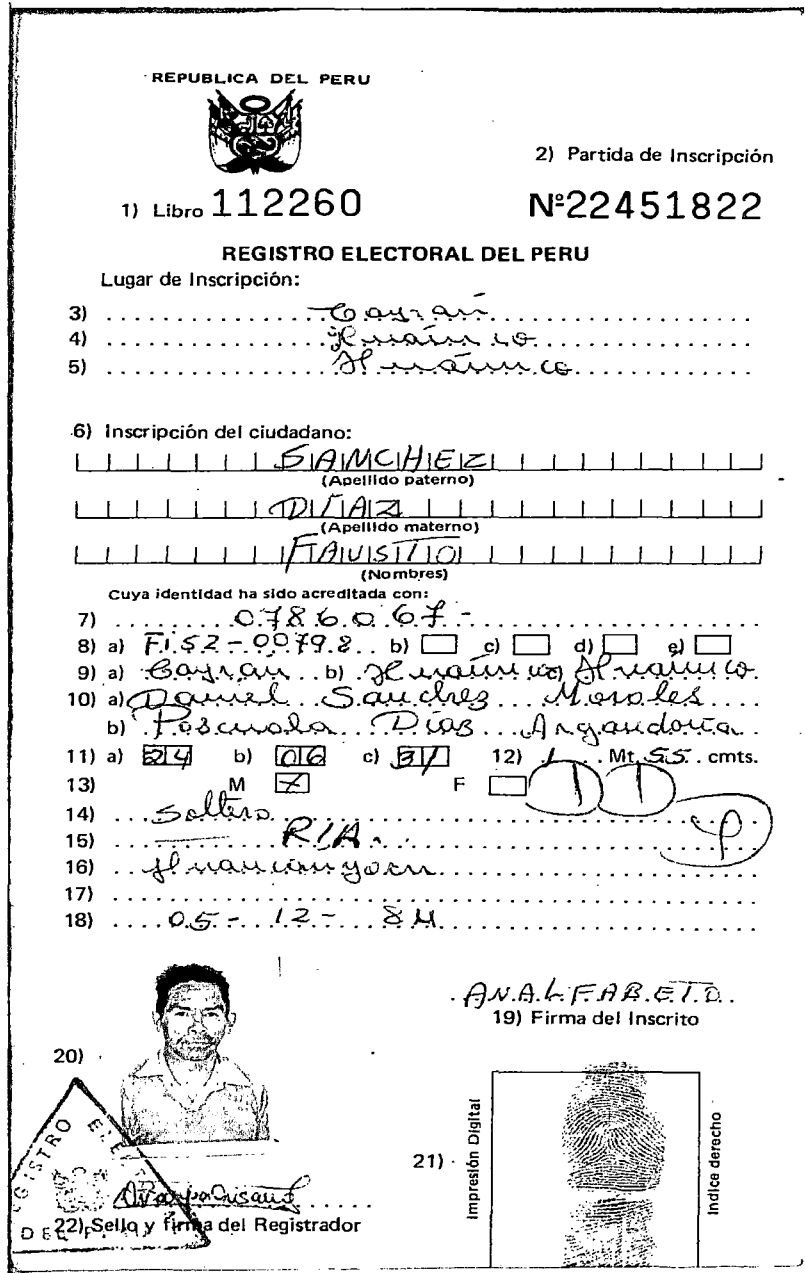 REPUBLICA DEL PERU
2) Partida de Inscripción
1) Libro 112260 Nº22451822
REGISTRO ELECTORAL DEL PERU
Lugar de Inscripción:
3) Cayrán
4) Huánuco
5) Huánuco
6) Inscripción del ciudadano:
SANCHEZ
(Apellido paterno)
DIAZ
(Apellido materno)
FAUSTO
(Nombres)
Cuya identidad ha sido acreditada con:
7) 0786067-
8) a) F1.52-00798 b) c) d) e)
9) a) Cayrán b) Huánuco c) Huánuco
10) a) Daniel Sanchez Morales
b) Diaz
11) a) 24 b) 06 c) 31 12) 1 Mt. 55 cmts.
13) M X F
14) Soltero
15) R/A
16)
17)
18) 05-12-84
ANALFABETO
19) Firma del Inscrito
20)
21)
Impresión Digital
Indice derecho
22) Sello y firma del Registrador